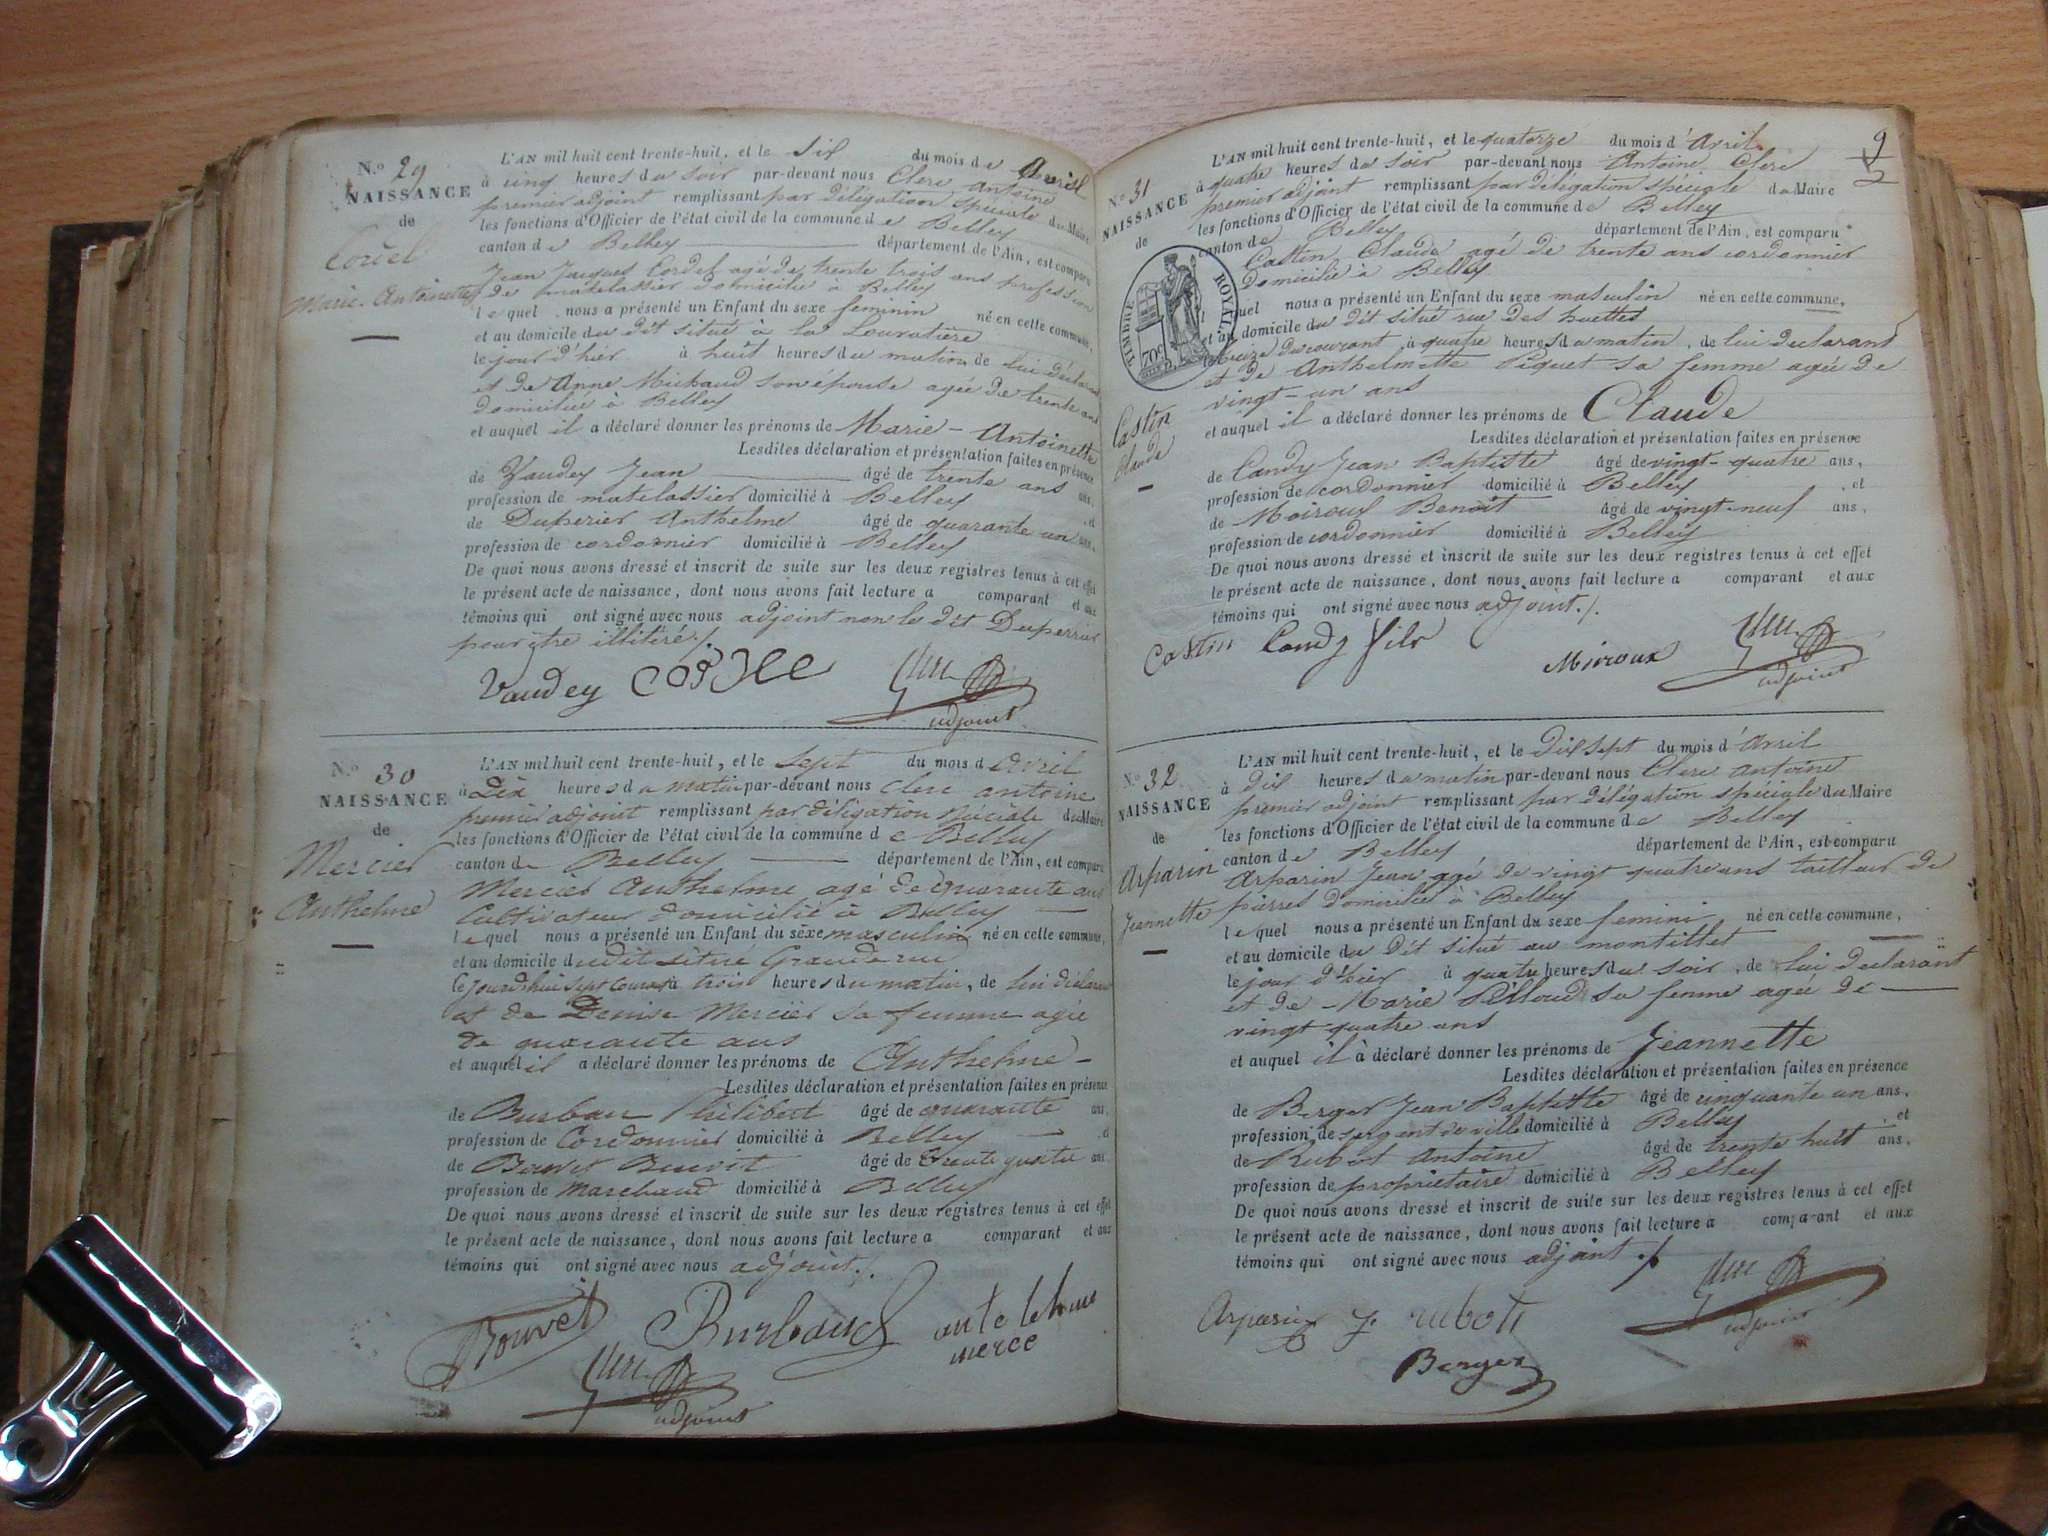 N.o 29
NAISSANCE
de
Cordel
Marie-Antoinette
L'AN mil huit cent trente-huit, et le six du mois de Avril
à cinq heures du soir par-devant nous Clerc Antoine
premier adjoint remplissant par délégation spéciale du Maire
les fonctions d'Officier de l'état civil de la commune de Belley
canton de Belley département de l'Ain, est comparu
Jean Jacques Cordel agé de trente trois ans profession
de matelassier domicilié à Belley
lequel nous a présenté un Enfant du sexe feminin né en cette commune,
et au domicile du dit situé à la Louvatière
le jour d'hier à huit heures du matin de lui déclarant
et de Anne Michaud son épouse agée de trente ans
domiciliée à Belley
et auquel il a déclaré donner les prénoms de Marie-Antoinette
Lesdites déclaration et présentation faites en présence
de Vaudey Jean âgé de trente ans ans,
profession de matelassier domicilié à Belley et
de Duperier Anthelme âgé de quarante un ans,
profession de cordonnier domicilié à Belley
De quoi nous avons dressé et inscrit de suite sur les deux registres tenus à cet effet
le présent acte de naissance, dont nous avons fait lecture a comparant et aux
témoins qui ont signé avec nous adjoint non le dit Duperrier
pour être illitiré ./.
Vaudey Cordel
adjoint
N.o 30
NAISSANCE
de
Mercier
Anthelme
L'AN mil huit cent trente-huit, et le Sept du mois d avril
à Dix heures du matin par-devant nous Clerc antoine
premier adjoint remplissant par délégation spéciale du Maire
les fonctions d'Officier de l'état civil de la commune de Belley
canton de Belley département de l'Ain, est comparu
Mercier Anthelme agé de quarante ans
Cultivateur domicilié à Belley
lequel nous a présenté un Enfant du sexe masculin né en cette commune,
et au domicile dudit situé Grande rue
le jourd'hui sept courant à trois heures du matin, de lui déclarant
et de Denise Mercier sa femme agée
de quarante ans
et auquel il a déclaré donner les prénoms de Anthelme
Lesdites déclaration et présentation faites en présence
de Burbau Philibert âgé de quarante ans,
profession de Cordonnier domicilié à Belley et
de Bouvet Benoit âgé de trente quatre ans
profession de Marchand domicilié à Belley
De quoi nous avons dressé et inscrit de suite sur les deux registres tenus à cet effet
le présent acte de naissance, dont nous avons fait lecture a comparant et aux
témoins qui ont signé avec nous adjoint ./.
Bouvet Burbaud
merce
adjoint
9
2
N.o 31
NAISSANCE
de
TIMBRE ROYAL
70c
Castin
Claude
L'AN mil huit cent trente-huit, et le quatorze du mois d'Avril
à quatre heures du soir par-devant nous Antoine Clerc
premier adjoint remplissant par délégation spéciale du Maire
les fonctions d'Officier de l'état civil de la commune de Belley
canton de Belley département de l'Ain, est comparu
Castin Claude agé de trente ans cordonnier
domicilié à Belley
lequel nous a présenté un Enfant du sexe masculin né en cette commune,
et au domicile du dit situé rue des huettes
le treize du courant, à quatre heures du matin, de lui declarant
et de Anthelmette Piquet sa femme agée de
vingt-un ans
et auquel il a déclaré donner les prénoms de Claude
Lesdites déclaration et présentation faites en présence
de Candy Jean Baptiste âgé de vingt-quatre ans,
profession de cordonnier domicilié à Belley, et
de Moiroux Benoit âgé de vingt-neuf ans,
profession de cordonnier domicilié à Belley
De quoi nous avons dressé et inscrit de suite sur les deux registres tenus à cet effet
le présent acte de naissance, dont nous avons fait lecture a comparant et aux
témoins qui ont signé avec nous adjoint ./.
Castin Candy fils Miroux
adjoint
N.o 32
NAISSANCE
de
Arparin
Jeannette
L'AN mil huit cent trente-huit, et le Dix sept du mois d'Avril
à dix heures du matin par-devant nous Clerc Antoine
premier adjoint remplissant par délégation speciale du Maire
les fonctions d'Officier de l'état civil de la commune de Belley
canton de Belley département de l'Ain, est comparu
Arparin Jean agé de vingt quatre ans tailleur de
pierres domicilié à Belley
lequel nous a présenté un Enfant du sexe femini né en cette commune,
et au domicile du dit situé au montillet
le jour d'hier à quatre heures du soir, de lui declarant
et de Marie Pélloud sa femme agée de
vingt quatre ans
et auquel il à déclaré donner les prénoms de Jeannette
Lesdites déclaration et présentation faites en présence
de Berger Jean Baptiste âgé de cinquante un ans,
profession de sergent de ville domicilié à Belley et
de Rubot Antoine âgé de trente huit ans,
profession de propriétaire domicilié à Belley
De quoi nous avons dressé et inscrit de suite sur les deux registres tenus à cet effet
le présent acte de naissance, dont nous avons fait lecture a comparant et aux
témoins qui ont signé avec nous adjoint ./.
Arparin rubot
adjoint
Berger